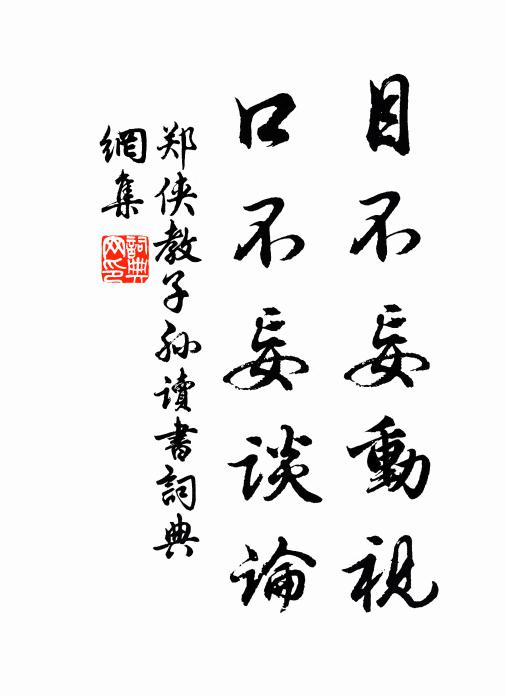 目不妄動視
口不妄談論
郑侠教子孙讀書詞典
網集
詞典网印